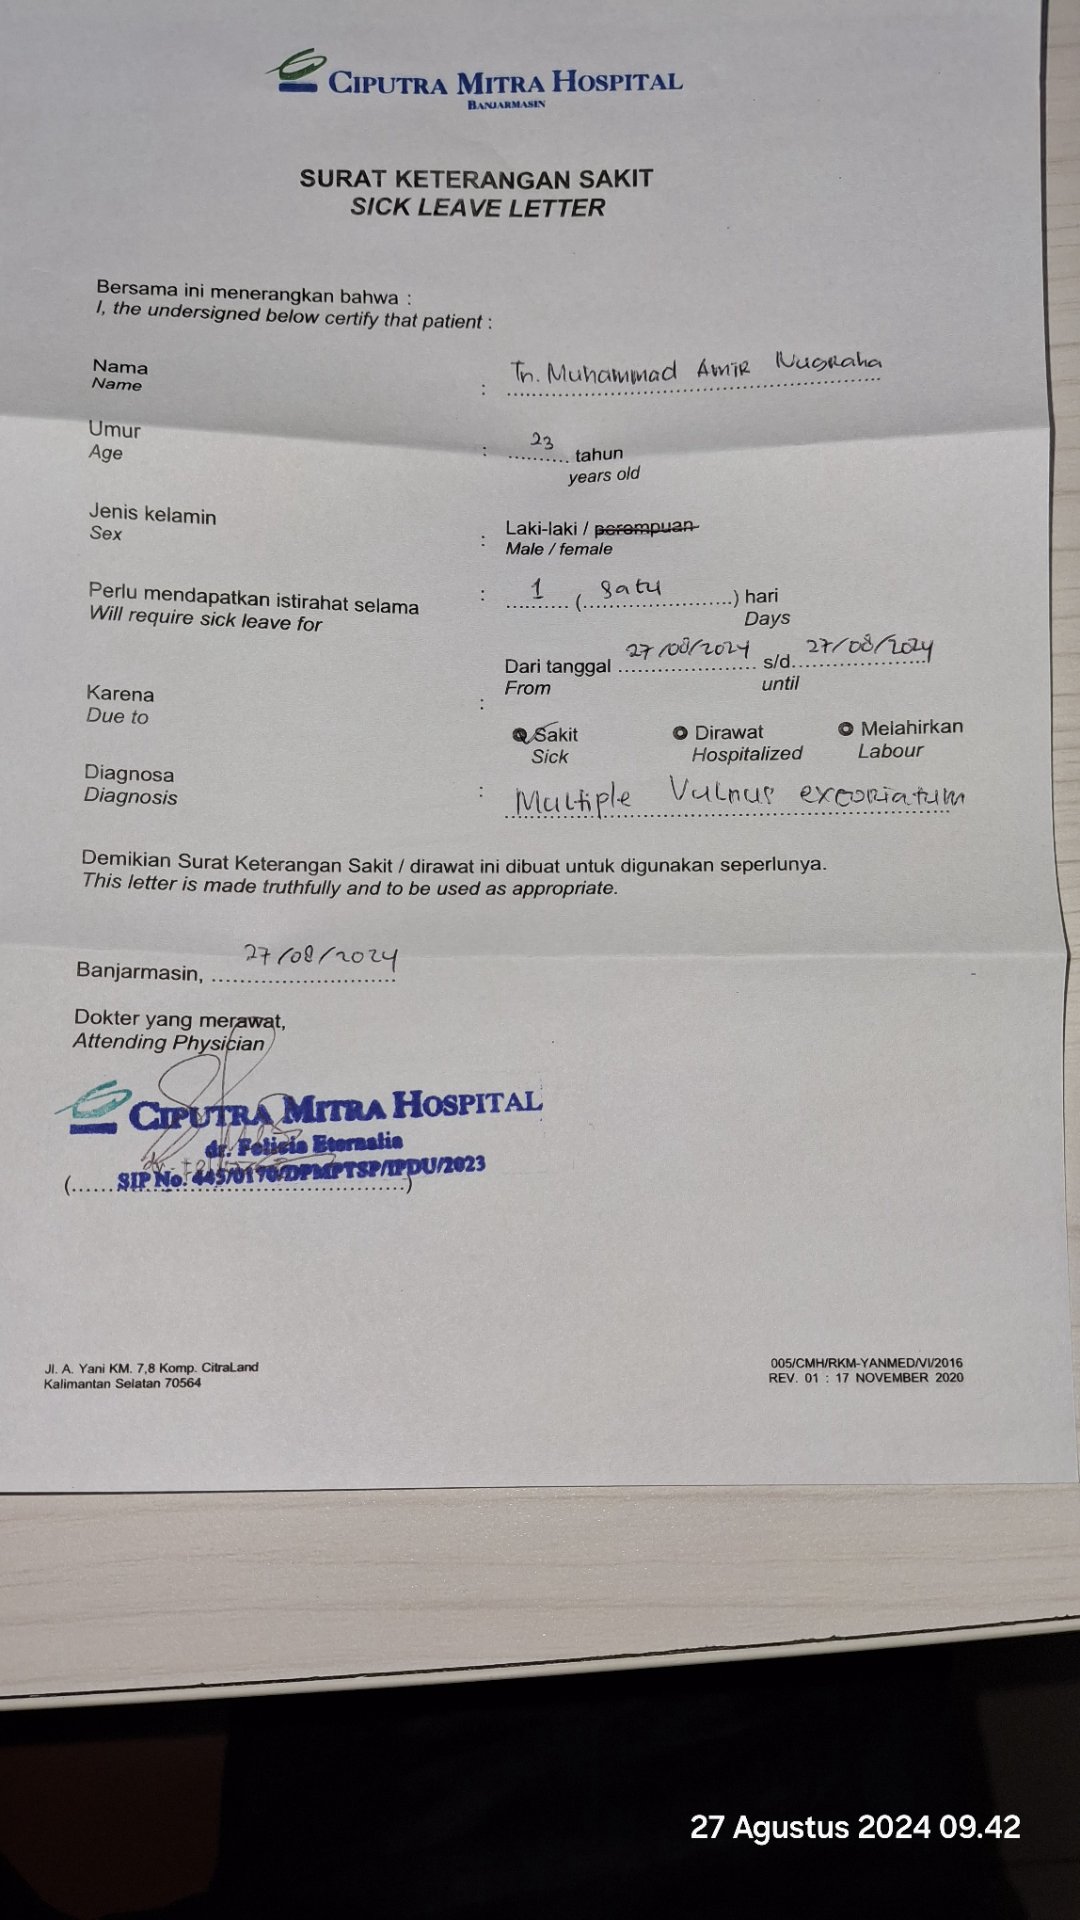 CIPUTRA MITRA HOSPITAL
BANJARMASIN
SURAT KETERANGAN SAKIT
SICK LEAVE LETTER
Bersama ini menerangkan bahwa :
I, the undersigned below certify that patient :
Nama : Tn. Muhammad Amir Nugraha
Name
Umur : 23 tahun
Age years old
Jenis kelamin : Laki-laki / perempuan
Sex Male / female
Perlu mendapatkan istirahat selama : 1 (satu) hari
Will require sick leave for Days
Dari tanggal 27/08/2024 s/d. 27/08/2024
From until
Karena :
Due to
Sakit Dirawat Melahirkan
Sick Hospitalized Labour
Diagnosa : Multiple Vulnus excoriatum
Diagnosis
Demikian Surat Keterangan Sakit / dirawat ini dibuat untuk digunakan seperlunya.
This letter is made truthfully and to be used as appropriate.
Banjarmasin, 27/08/2024
Dokter yang merawat,
Attending Physician
CIPUTRA MITRA HOSPITAL
dr. Felicia Eternalia
SIP No. 445/0170/DPMPTSP/IPDU/2023
Jl. A. Yani KM. 7,8 Komp. CitraLand
Kalimantan Selatan 70564
005/CMH/RKM-YANMED/VI/2016
REV. 01 : 17 NOVEMBER 2020
27 Agustus 2024 09.42